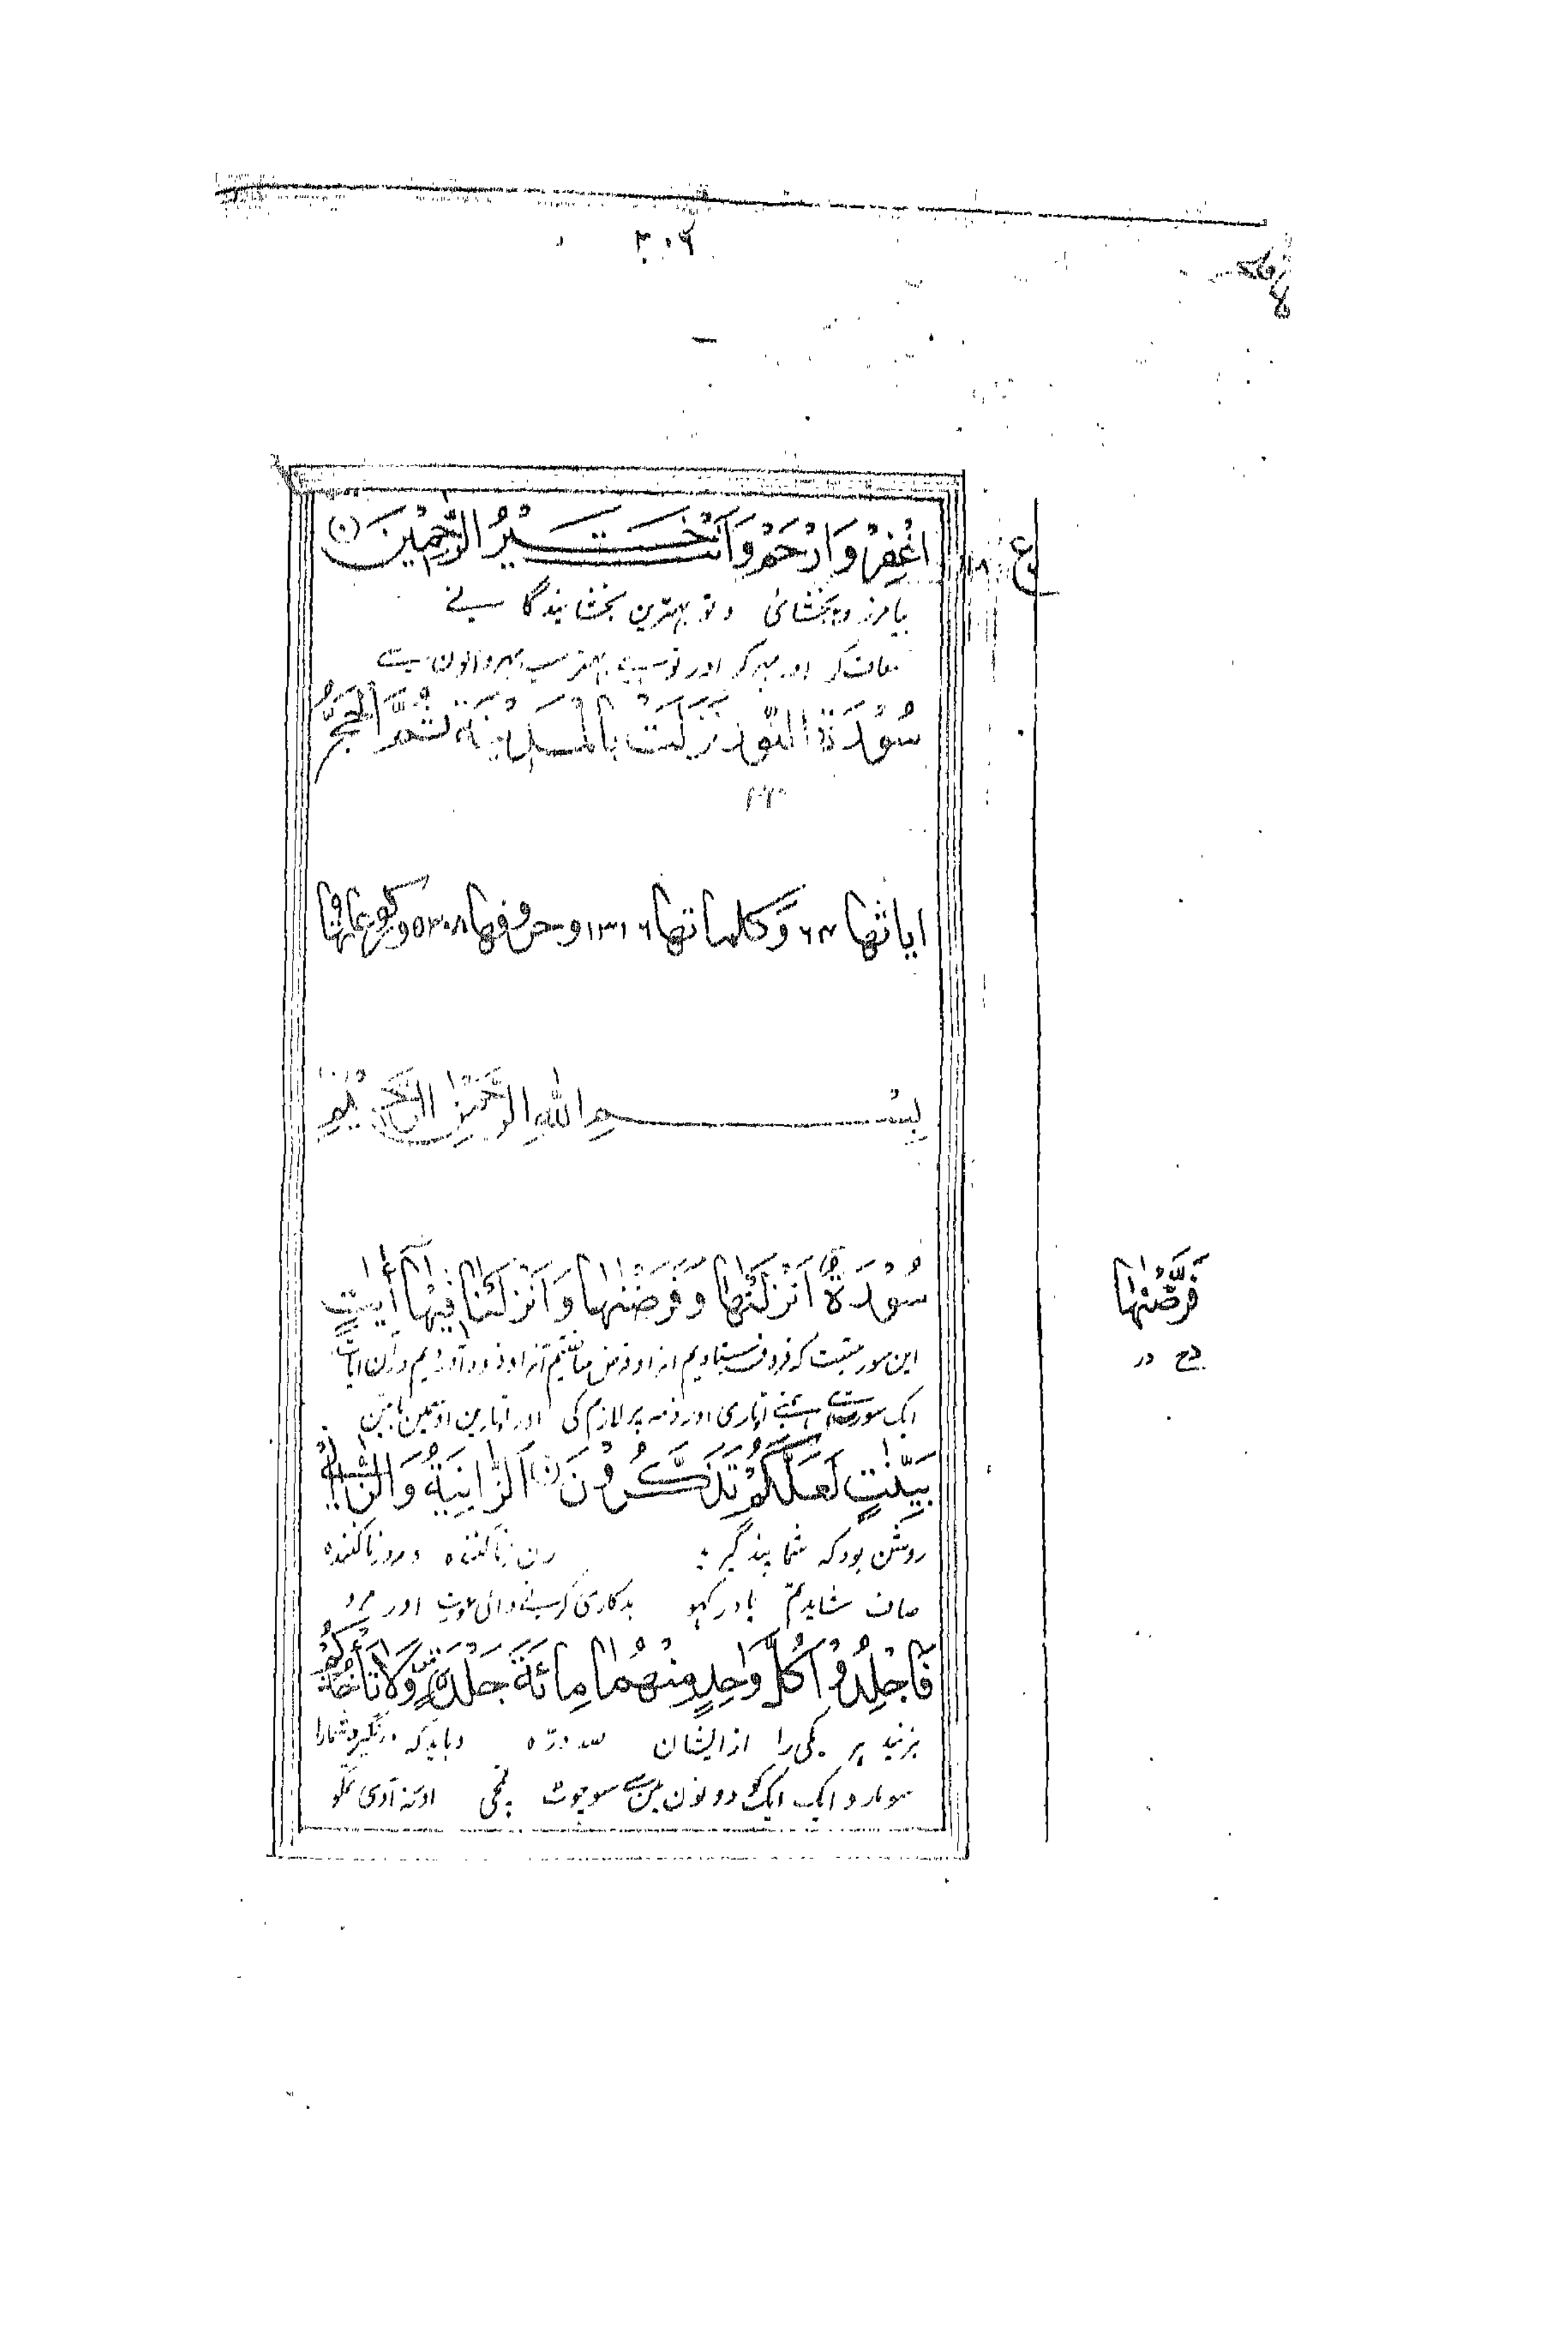 ۳۰۶
اغْفِرْ وَارْحَمْ وَاَنْتَ خَيْرُ الرّٰحِمِيْنَ
ع
بیامرز و ببخشائی و تو بهترین بخشایندگا نے
معاف کر اور مہر کر اور تو ہے بہتر سب مہر والون سے
سُوْرَةُ النُّوْرِ نَزَلَتْ بِالْمَدِيْنَةِ ثُمَّ الْحَجُّ
اياتها ٦٤ وَّكلماتها ١٣١٦ وحروفها
بِسْمِ اللّٰهِ الرَّحْمٰنِ الرَّحِيْمِ
سُوْرَةٌ اَنْزَلْنٰهَا وَفَرَضْنٰهَا وَاَنْزَلْنَا فِيْهَا اٰيٰتٍ
فَرَّضْنٰهَا
این سورتیست که فرو فرستادیم آنرا و فرض ساختیم آنرا و فرود آوردیم در آن آیات
ایک سورت ہے ہمنے اتاری اور ذمہ پر لازم کی اور اتارین اوسمین باتین
بَيِّنٰتٍ لَّعَلَّكُمْ تَذَكَّرُوْنَ اَلزَّانِيَةُ وَالزَّانِيْ
روشن بود که شما پند گیر زن زنا کننده و مرد زنا کننده
صاف شاید تم یاد رکہو بدکاری کرنے والی عورت اور مرد
فَاجْلِدُوْا كُلَّ وَاحِدٍ مِّنْهُمَا مِائَةَ جَلْدَةٍ وَّلَا تَأْخُذْكُمْ
بزنید هر یکی را از ایشان صد دره و باید که درنگیرد شمارا
سو مارو ایک ایک کو دونون مین سے سو چوٹ قمچی اور نہ آوی تمکو